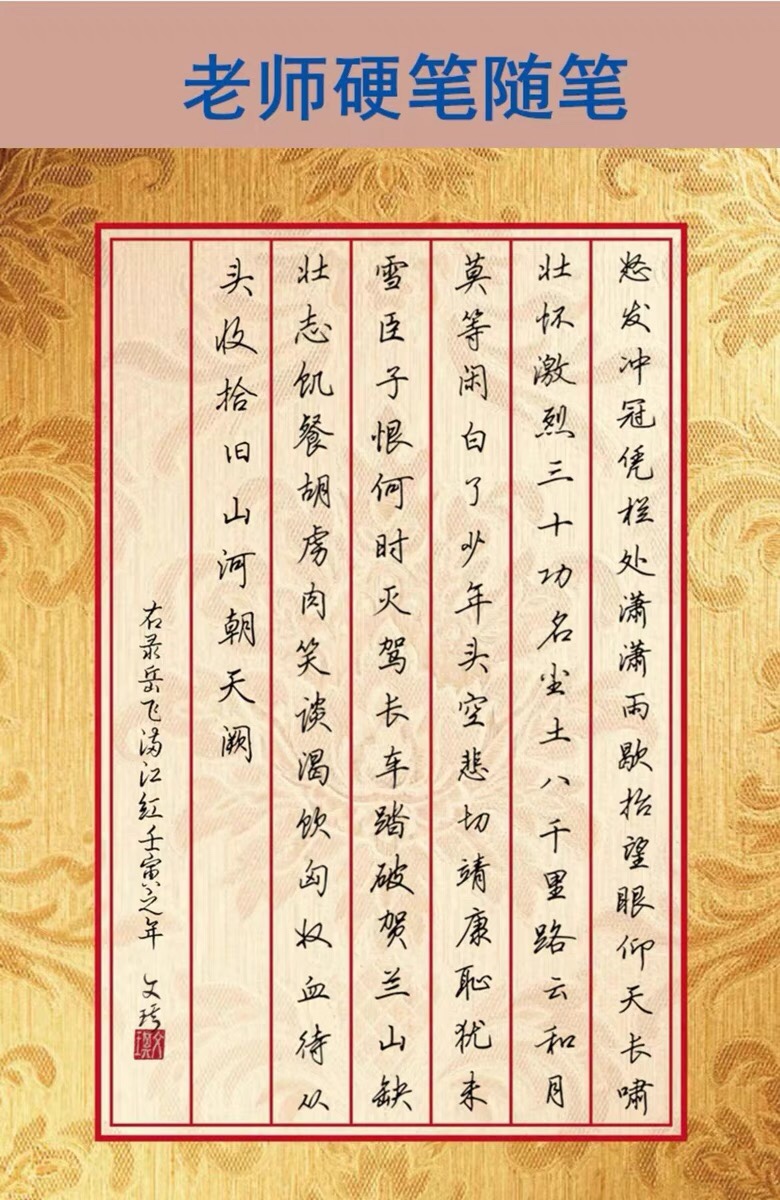 老师硬笔随笔
怒发冲冠凭栏处潇潇雨歇抬望眼仰天长啸
壮怀激烈三十功名尘土八千里路云和月
莫等闲白了少年头空悲切靖康耻犹未
雪臣子恨何时灭驾长车踏破贺兰山缺
壮志饥餐胡虏肉笑谈渴饮匈奴血待从
头收拾旧山河朝天阙
右录岳飞满江红壬寅之年